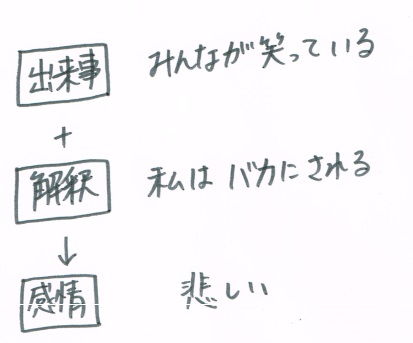 出来事 みんなが笑っている
+
解釈 私はバカにされる
↓
感情 悲しい